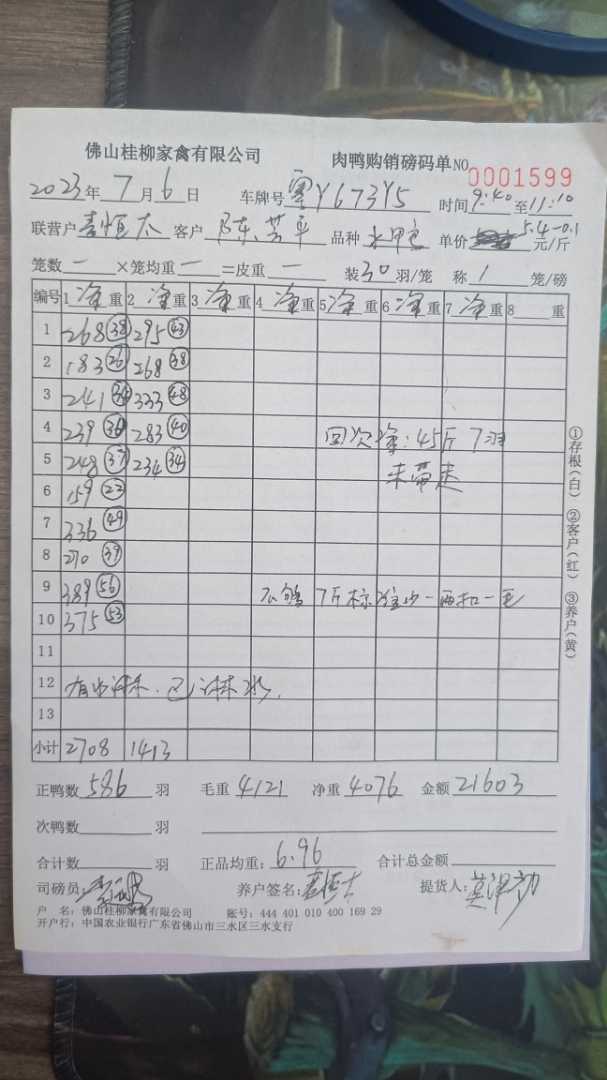 佛山桂柳家禽有限公司 肉鸭购销磅码单 NO 0001599
2023年7月6日 车牌号 粤Y673Y5 时间 9:40 至 11:10
联营户 恒太 客户 陈芳平 品种 单价 5.4-0.1 元/斤
笼数 一 ×笼均重 一 =皮重 一 装 30 羽/笼 称 1 笼/磅
编号 1 净重 2 净重 3 净重 4 净重 5 净重 6 净重 7 净重 8 重
1 268 38 295 43
2 183 26 268 38
3 241 34 333 48
4 239 36 283 40 回次净:45斤 7羽
5 248 37 234 34 未带走
6 159 23
7 336 49
8 270 39
9 389 56 不够7斤标准少一两扣一毛
10 375 53
11
12 淋,已淋水.
13
小计 2708 1413
正鸭数 586 羽 毛重 4121 净重 4076 金额 21603
次鸭数 羽
合计数 羽 正品均重: 6.96 合计总金额
司磅员: 养户签名: 提货人:
户 名: 佛山桂柳家禽有限公司 账号: 444 401 010 400 169 29
开户行: 中国农业银行广东省佛山市三水区三水支行
①存根(白) ②客户(红) ③养户(黄)